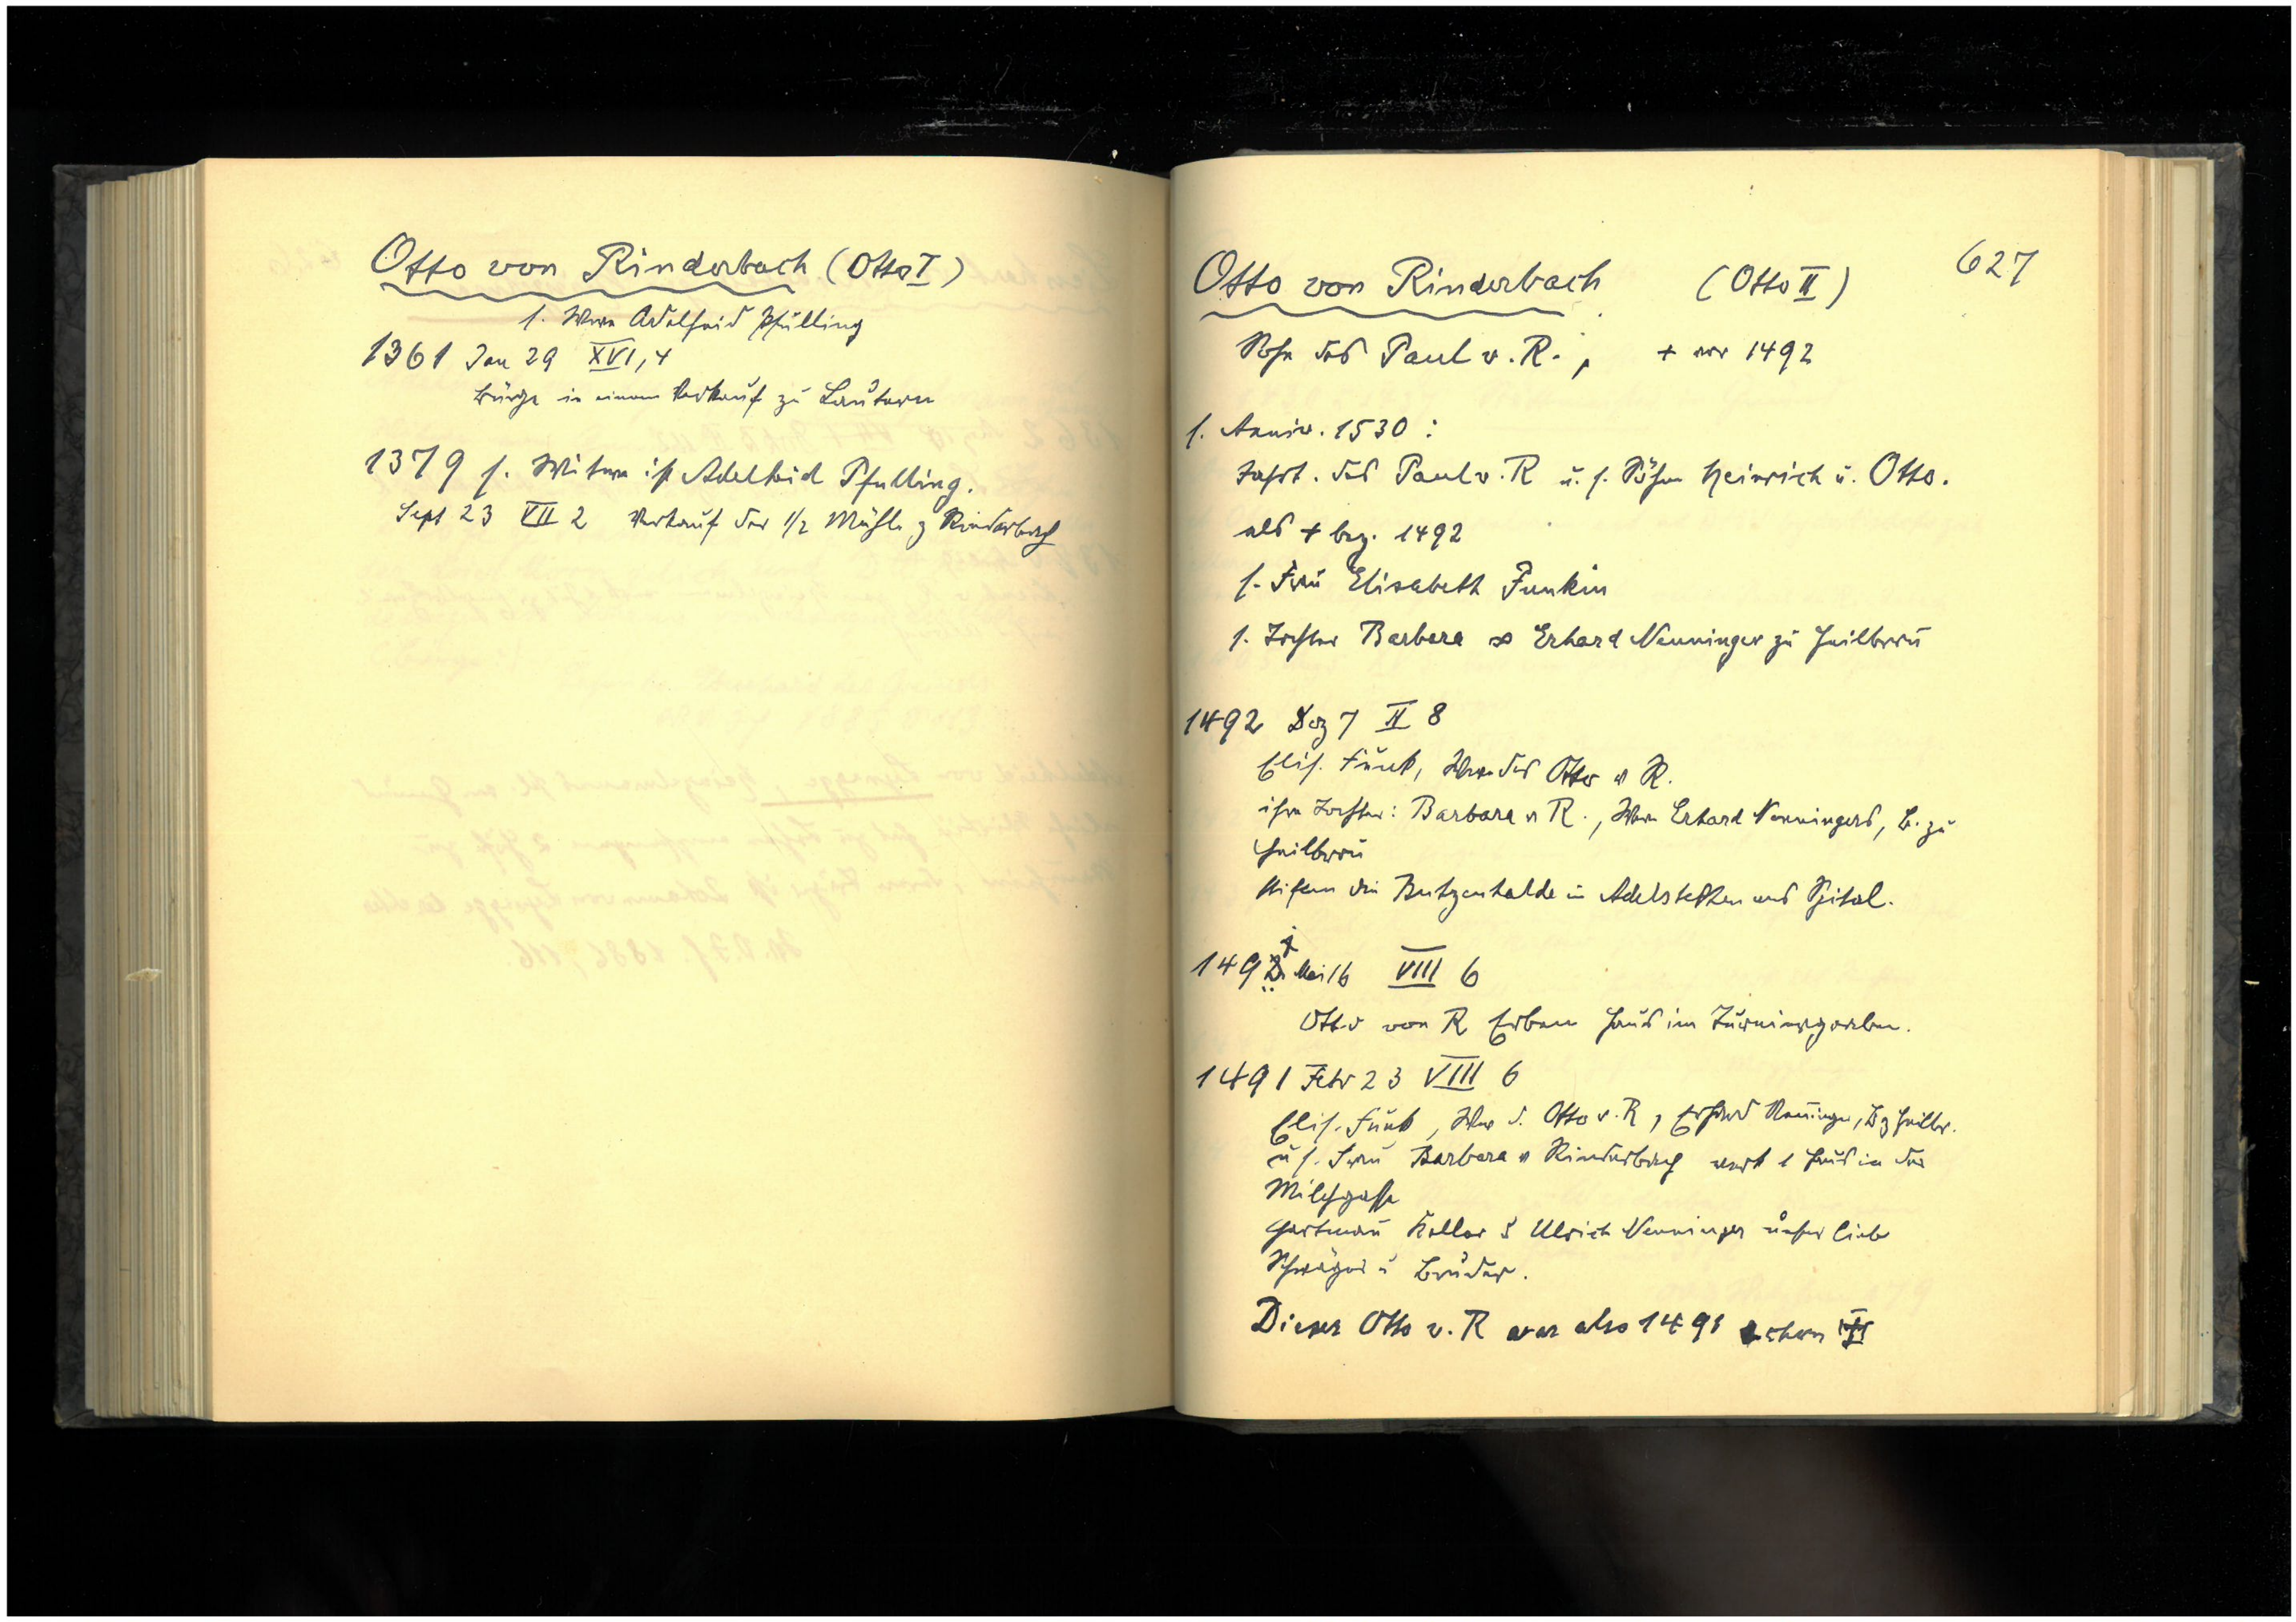 Otto von Rinderbach (Otto I)
s. Wwe Adelheid Pfülling
1361 Jan 29 XVI, 4
Bürge in einem Verkauf zu Lautern
1379 s. Witwe ist Adelheid Pfulling.
Sept 23 VII 2 Verkauf der 1/2 Mühle z Rinderbach
627
Otto von Rinderbach (Otto II)
Sohn des Paul v. R., + vor 1492
s. Anniv. 1530:
Jahrt. des Paul v. R u. s. Söhne Heinrich u. Otto.
als + bez. 1492
s. Frau Elisabeth Funkin
s. Tochter Barbara ∞ Erhard Nenninger zu Heilbronn
1492 Dez 7 II 8
Elis. Funk, Wwe des Otto v R.
ihre Tochter: Barbara v R., Wwe Erhard Nenningers, B. zu
Heilbronn
stiften die Butzenhalde in Adelstetten ans Spital.
149 Mai 16 VIII 6
Otto von R Erben Haus im Turniergraben.
1491 Febr 23 VIII 6
Elis. Funk, Wwe d. Otto v. R, Erhard Nenninger, B z Heilbr.
u s. Frau Barbara v Rinderbach verk 1 Haus in der
Milchgasse
Hartman Keller & Ulrich Nenninger unser liebe
Schwäger u Bruder.
Dieser Otto v. R war also 1491 schon